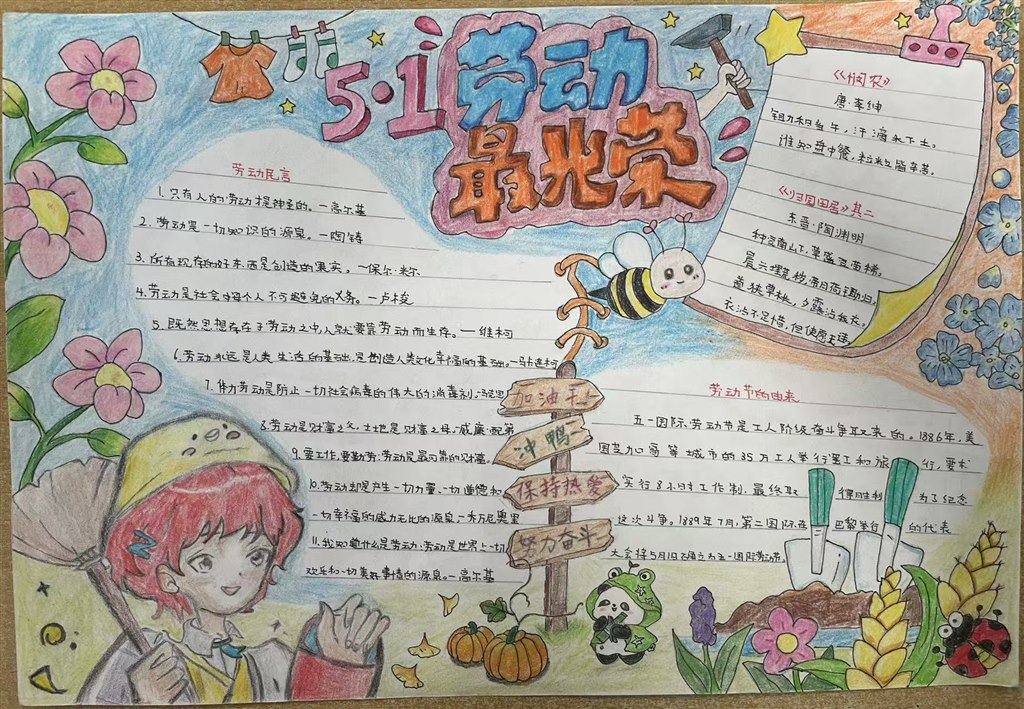 5·1 劳动
最光荣
劳动民言
1.只有人的劳动才是神圣的。—高尔基
2. 劳动是一切知识的源泉。—陶铸
3.所有现存的好东西是创造的果实。—保尔·米尔
4.劳动是社会中每个人不可避免的义务。—卢梭
5.既然思想存在于劳动之中,人就要靠劳动而生存。——维柯
6.劳动永远是人类生活的基础,是创造人类文化幸福的基础。—马卡连柯
7.体力劳动是防止一切社会病毒的伟大的消毒剂。
8.劳动是财富之父,土地是财富之母。—威廉·配第
9.要工作,要勤劳:劳动是最可靠的财富。
10.劳动却是产生一切力量、一切道德和
一切幸福的威力无比的源泉。
11.我知道什么是劳动:劳动是世界上一切
欢乐和一切美好事情的源泉。—高尔基
《悯农》
唐·李绅
锄禾日当午,汗滴禾下土。
谁知盘中餐,粒粒皆辛苦。
《归园田居》其二
东晋·陶渊明
种豆南山下,草盛豆苗稀。
晨兴理荒秽,带月荷锄归。
道狭草木长,夕露沾我衣。
衣沾不足惜,但使愿无违。
加油干!
冲鸭
保持热爱
努力奋斗
劳动节的由来
五一国际劳动节是工人阶级奋斗争取来的。1886年,美
国芝加哥等城市的35万工人举行罢工和旅行,要求
实行8小时工作制,最终取得胜利 为了纪念
这次斗争。1889年7月,第二国际在巴黎举行的代表
大会将5月1日确立为五一国际劳动节